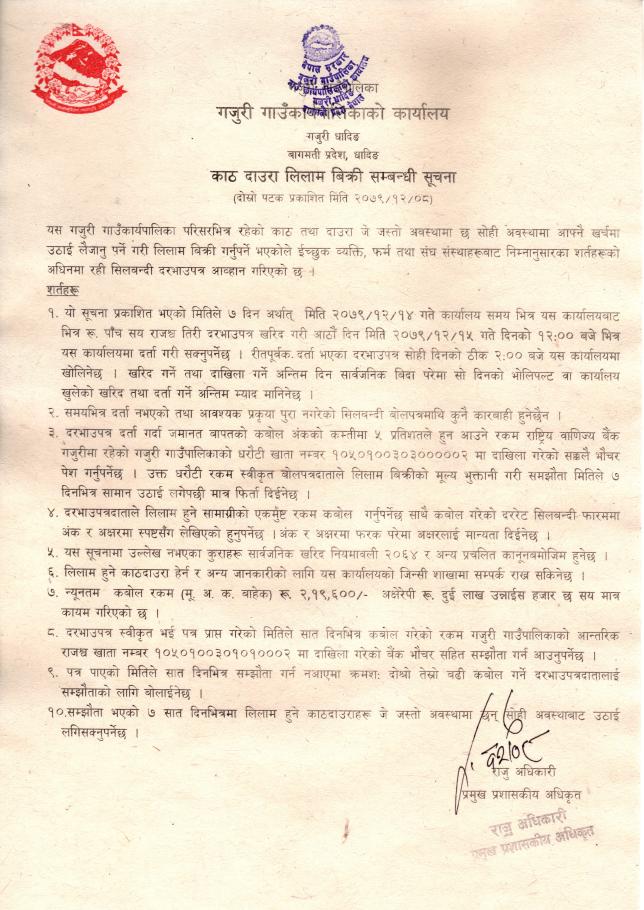 गजुरी गाउँपालिका
गजुरी गाउँकार्यपालिकाको कार्यालय
गजुरी धादिङ
बागमती प्रदेश, धादिङ
काठ दाउरा लिलाम बिक्री सम्बन्धी सूचना
(दोस्रो पटक प्रकाशित मिति २०७९/१२/०८)
यस गजुरी गाउँकार्यपालिका परिसरभित्र रहेको काठ तथा दाउरा जे जस्तो अवस्थामा छ सोही अवस्थामा आफ्नै खर्चमा
उठाई लैजानु पर्ने गरी लिलाम बिक्री गर्नुपर्ने भएकोले ईच्छुक व्यक्ति, फर्म तथा संघ संस्थाहरूबाट निम्नानुसारका शर्तहरूको
अधिनमा रही सिलबन्दी दरभाउपत्र आव्हान गरिएको छ ।
शर्तहरू
१. यो सूचना प्रकाशित भएको मितिले ७ दिन अर्थात् मिति २०७९/१२/१४ गते कार्यालय समय भित्र यस कार्यालयबाट
भित्र रू. पाँच सय राजश्व तिरी दरभाउपत्र खरिद गरी आठौँ दिन मिति २०७९/१२/१५ गते दिनको १२:०० बजे भित्र
यस कार्यालयमा दर्ता गरी सक्नुपर्नेछ । रीतपूर्वक दर्ता भएका दरभाउपत्र सोही दिनको ठीक २:०० बजे यस कार्यालयमा
खोलिनेछ । खरिद गर्ने तथा दाखिला गर्ने अन्तिम दिन सार्वजनिक विदा परेमा सो दिनको भोलिपल्ट वा कार्यालय
खुलेको खरिद तथा दर्ता गर्ने अन्तिम म्याद मानिनेछ ।
२. समयभित्र दर्ता नभएको तथा आवश्यक प्रकृया पुरा नगरेको सिलबन्दी बोलपत्रमाथि कुनै कारबाही हुनेछैन ।
३. दरभाउपत्र दर्ता गर्दा जमानत बापतको कबोल अंकको कम्तीमा ५ प्रतिशतले हुन आउने रकम राष्ट्रिय वाणिज्य बैंक
गजुरीमा रहेको गजुरी गाउँपालिकाको धरौटी खाता नम्बर १०५०१००३०३०००००२ मा दाखिला गरेको सक्कलै भौचर
पेश गर्नुपर्नेछ । उक्त धरौटी रकम स्वीकृत बोलपत्रदाताले लिलाम बिक्रीको मूल्य भुक्तानी गरी समझौता मितिले ७
दिनभित्र सामान उठाई लगेपछी मात्र फिर्ता दिईनेछ ।
४. दरभाउपत्रदाताले लिलाम हुने सामाग्रीको एकमुष्ट रकम कबोल गर्नुपर्नेछ साथै कबोल गरेको दररेट सिलबन्दी फारममा
अंक र अक्षरमा स्पष्टसँग लेखिएको हुनुपर्नेछ । अंक र अक्षरमा फरक परेमा अक्षरलाई मान्यता दिईनेछ ।
५. यस सूचनामा उल्लेख नभएका कुराहरू सार्वजनिक खरिद नियमावली २०६४ र अन्य प्रचलित कानूनबमोजिम हुनेछ ।
६. लिलाम हुने काठदाउरा हेर्न र अन्य जानकारीको लागि यस कार्यालयको जिन्सी शाखामा सम्पर्क राख्न सकिनेछ ।
७. न्यूनतम कबोल रकम (मू. अ. क. बाहेक) रू. २,१९,६००/- अक्षेरेपी रू. दुई लाख उन्नाईस हजार छ सय मात्र
कायम गरिएको छ ।
८. दरभाउपत्र स्वीकृत भई पत्र प्राप्त गरेको मितिले सात दिनभित्र कबोल गरेको रकम गजुरी गाउँपालिकाको आन्तरिक
राजश्व खाता नम्बर १०५०१००३०१०१०००२ मा दाखिला गरेको बैंक भौचर सहित सम्झौता गर्न आउनुपर्नेछ ।
९. पत्र पाएको मितिले सात दिनभित्र सम्झौता गर्न नआएमा क्रमश: दोश्रो तेस्रो बढी कबोल गर्ने दरभाउपत्रदातालाई
सम्झौताको लागि बोलाईनेछ ।
१०.सम्झौता भएको ७ सात दिनभित्रमा लिलाम हुने काठदाउराहरू जे जस्तो अवस्थामा छन् सोही अवस्थाबाट उठाई
लगिसक्नुपर्नेछ ।
राजु अधिकारी
प्रमुख प्रशासकीय अधिकृत
राजु अधिकारी
प्रमुख प्रशासकीय अधिकृत